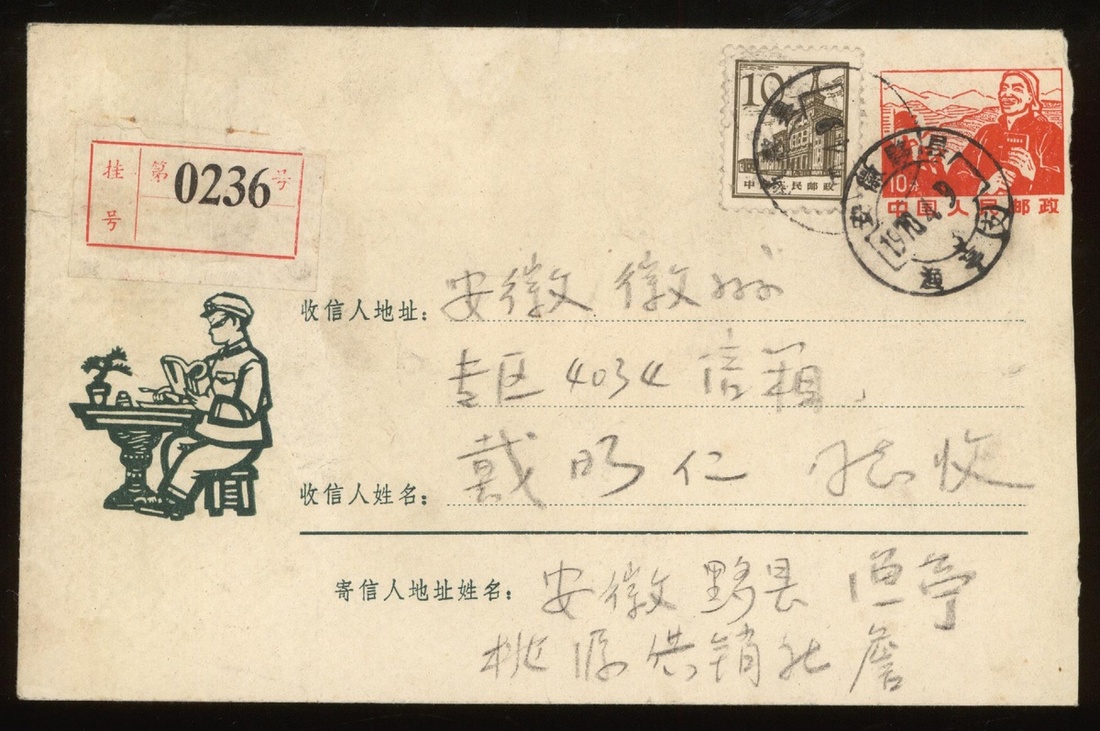 10
中国人民邮政
10分
中国人民邮政
安徽黟县
1970.4.9
渔亭
挂号
第0236号
收信人地址：安徽徽州
专区4034信箱，
收信人姓名：戴明仁 同志收
寄信人地址姓名：安徽黟县渔亭
桃源供销社詹